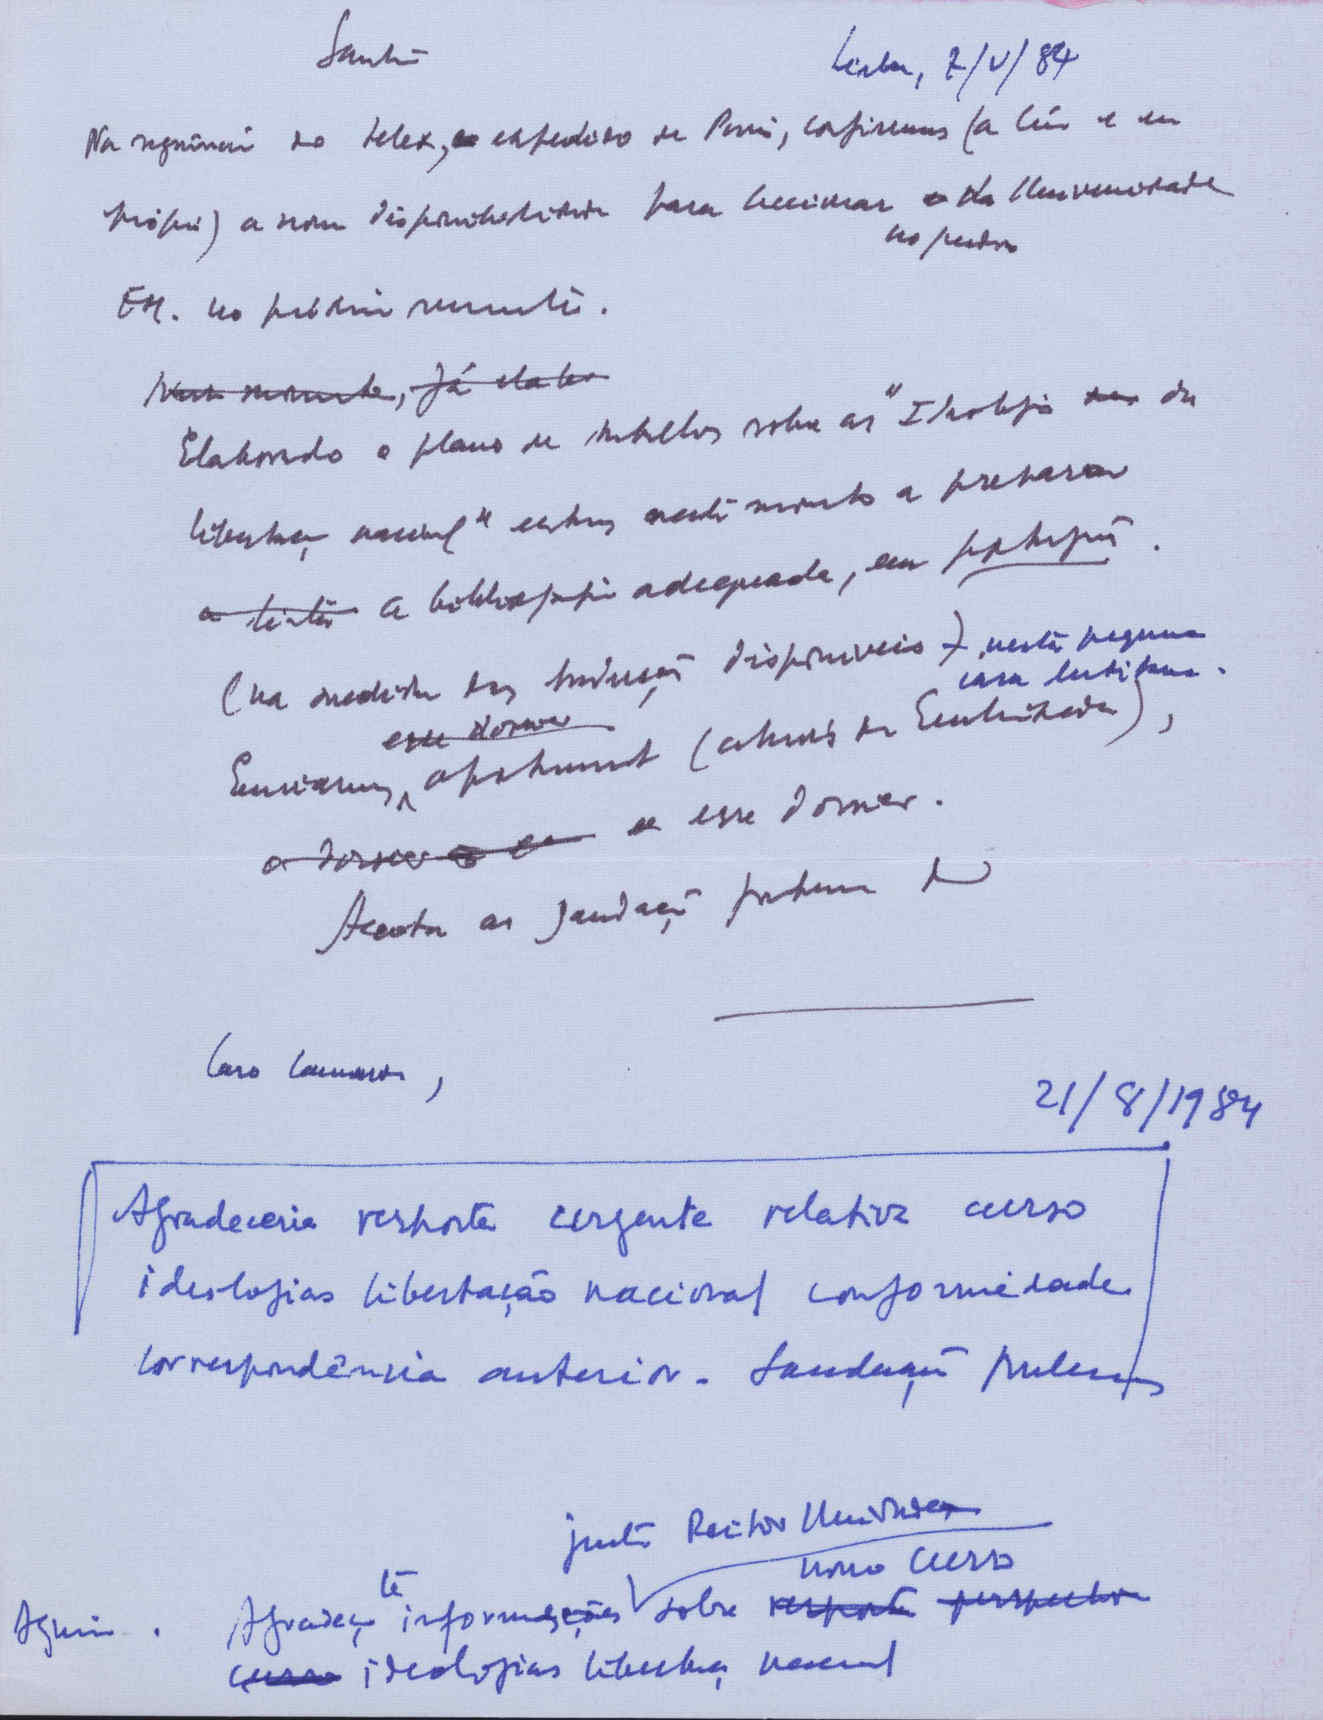 Lisboa, 7/V/84
Na sequência do telex, expedido de Paris, confirmamos (a Lúcio e eu
próprio) a nossa disponibilidade para leccionar na Universidade
no quadro
EM. no próximo semestre.
Neste momento, Já elabo
Elaborado o plano de trabalhos sobre as "Ideologias da
libertação nacional" estamos neste momento a preparar
a bibliografia adequada, em português.
(na medida das traduções disponíveis), nesta pequena
casa lusitana.
esse dossier
Enviaremos, oportunamente (através da Embaixada),
o dossier esse dossier.
Aceita as saudações
Caro Camarada,
21/8/1984
Agradeceria resposta urgente relativa curso
ideologias libertação nacional conformidade
correspondência anterior. Saudações
junto Reitor Universidade
nosso curso
Aquino. Agradeço-te informações sobre resposta perspectiva
curso ideologias libertação nacional